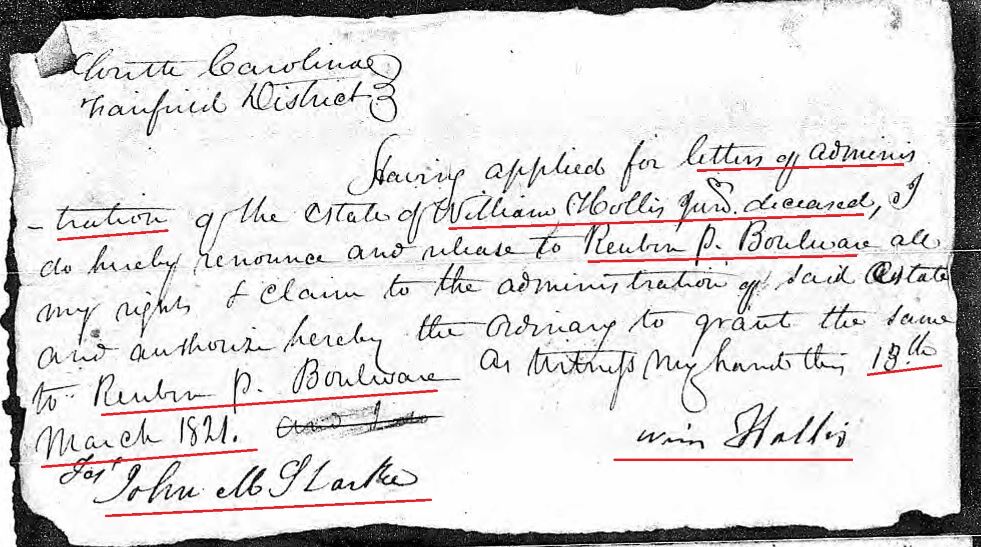 South Carolina
Fairfield District
Having applied for letters of adminis
-tration of the estate of William Hollis Junr. deceased, I
do hereby renounce and release to Reuben P. Boulware all
my rights & claim to the administration of said Estate
and authorize hereby the Ordinary to grant the same
to Reuben P. Boulware As Witness My hand this 13th
March 1821. and I do
Wm Hollis
Test
John M Starke